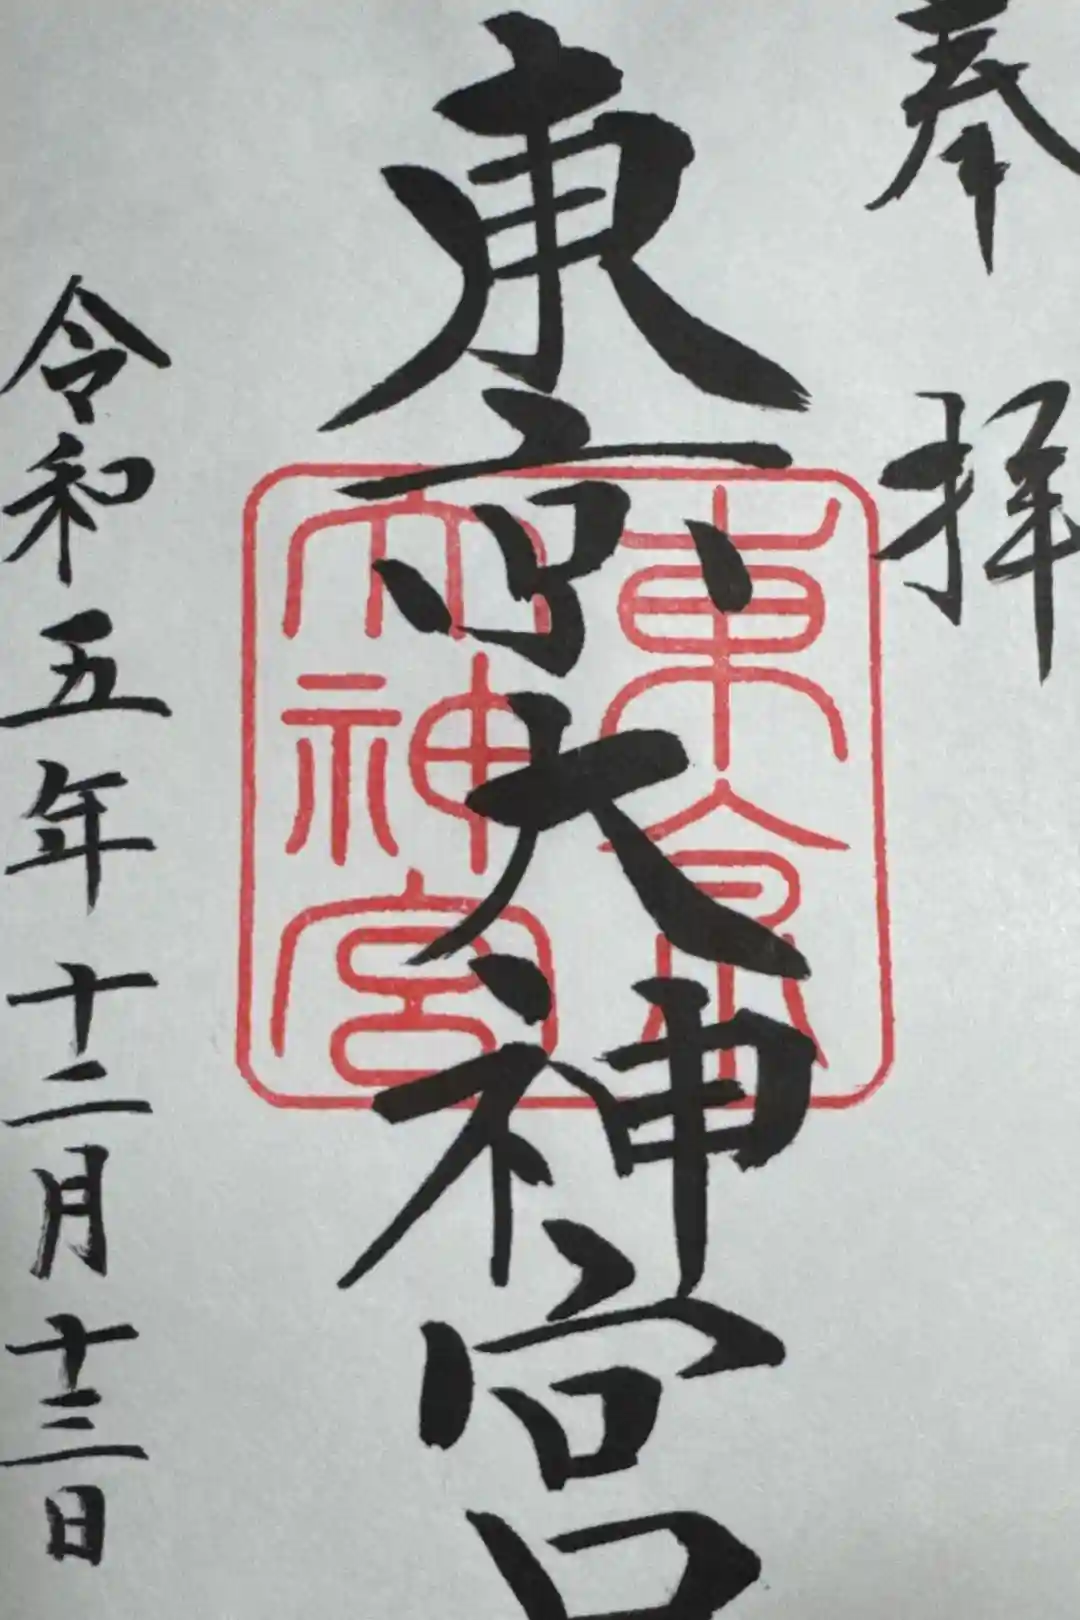 奉拝
東京大神宮
東京
大神宮
令和五年十二月十三日